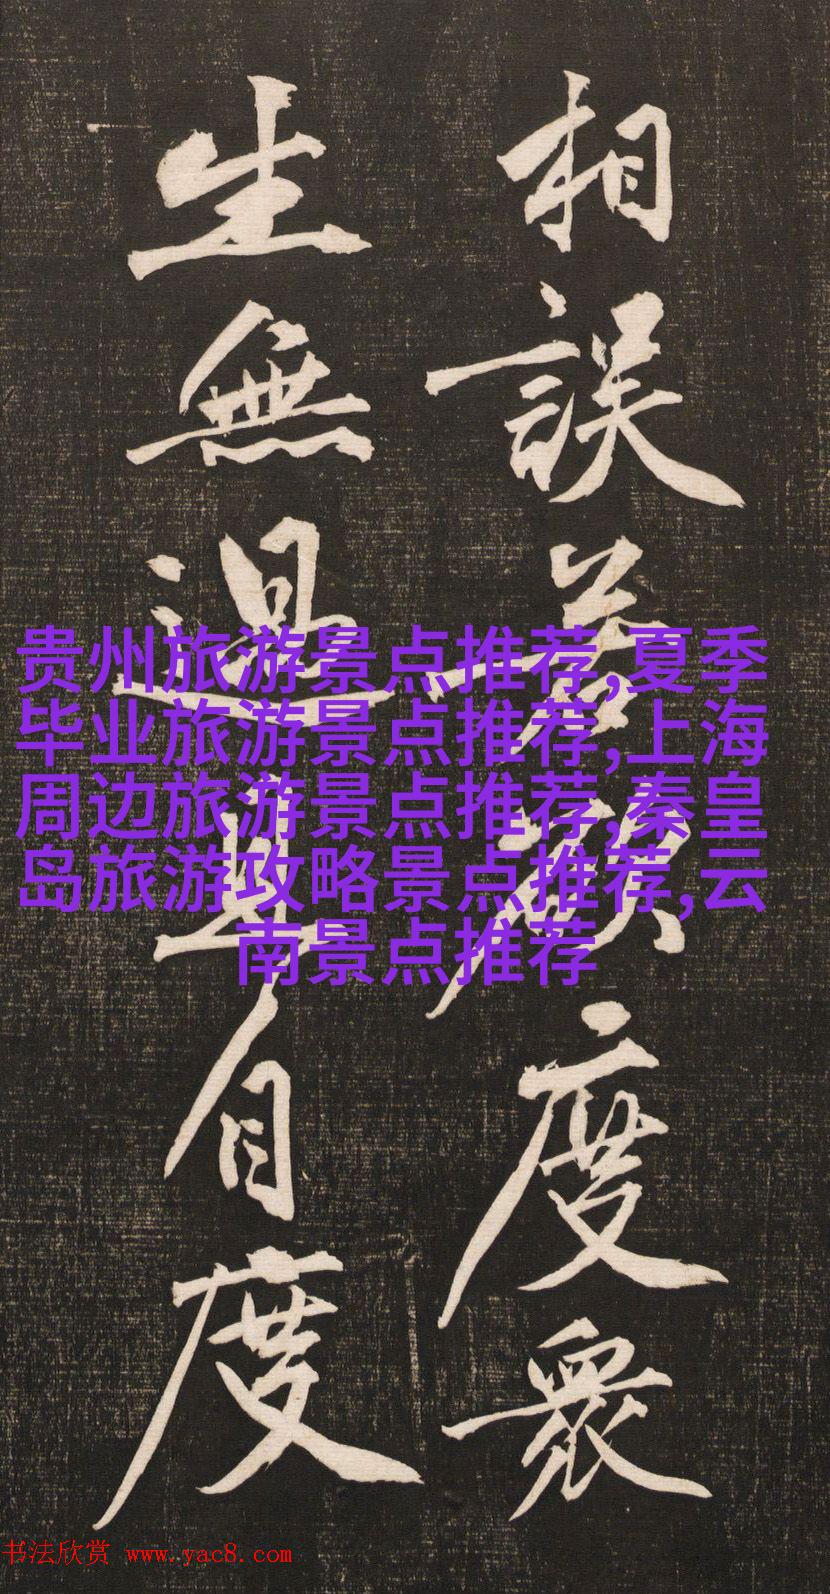 相誤若欲度衆
生無過且自度
贵州旅游景点推荐,夏季
毕业旅游景点推荐,上海
周边旅游景点推荐,秦皇
岛旅游攻略景点推荐,云
南景点推荐
书法欣赏 www.yac8.com